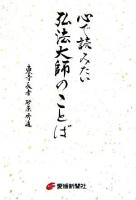 心で読みたい
弘法大師のことば
愛媛新聞社